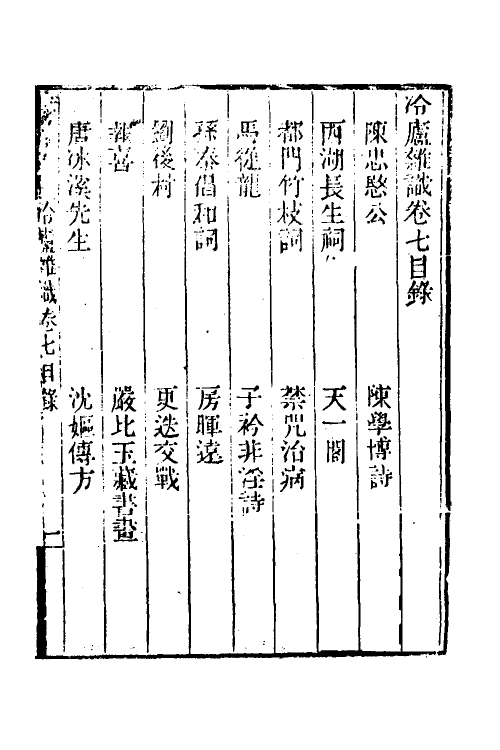 冷廬雜識卷七目錄
陳忠愍公　陳學博詩
西湖長生祠　天一閣
都門竹枝詞　禁咒治病
馬從龍　子衿非淫詩
孫泰倡和詞　房暉遠
劉後村　更迭交戰
報喜　嚴比玉藏書畫
唐冰溪先生　沈嫗傳方
冷廬雜識卷七目錄　一